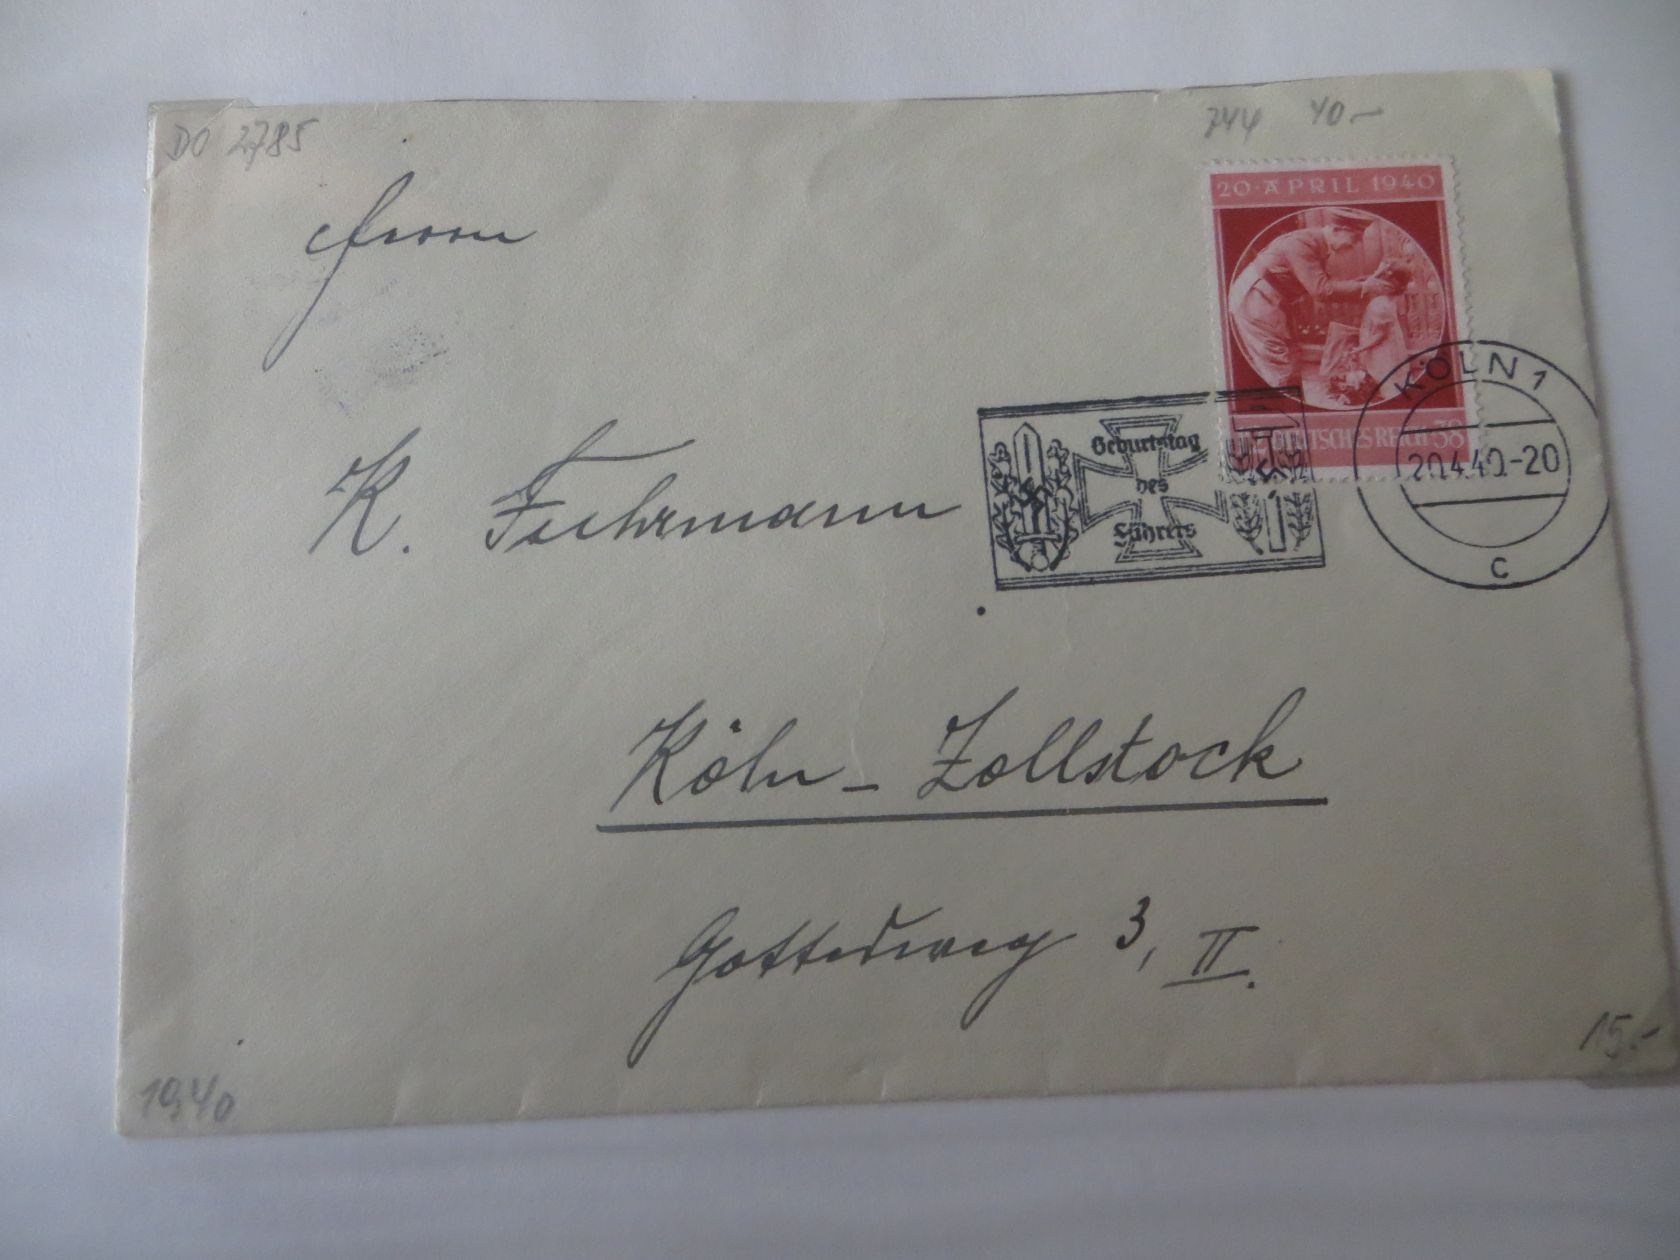 DO 2785
744 40.-
20·APRIL 1940
Herrn
KÖLN 1
Geburtstag
des
Führers
DEUTSCHES REICH 38
20.4.40.-20
c
K. Fuhrmann
Köln - Zollstock
Gottesweg 3, II.
15.-
1940